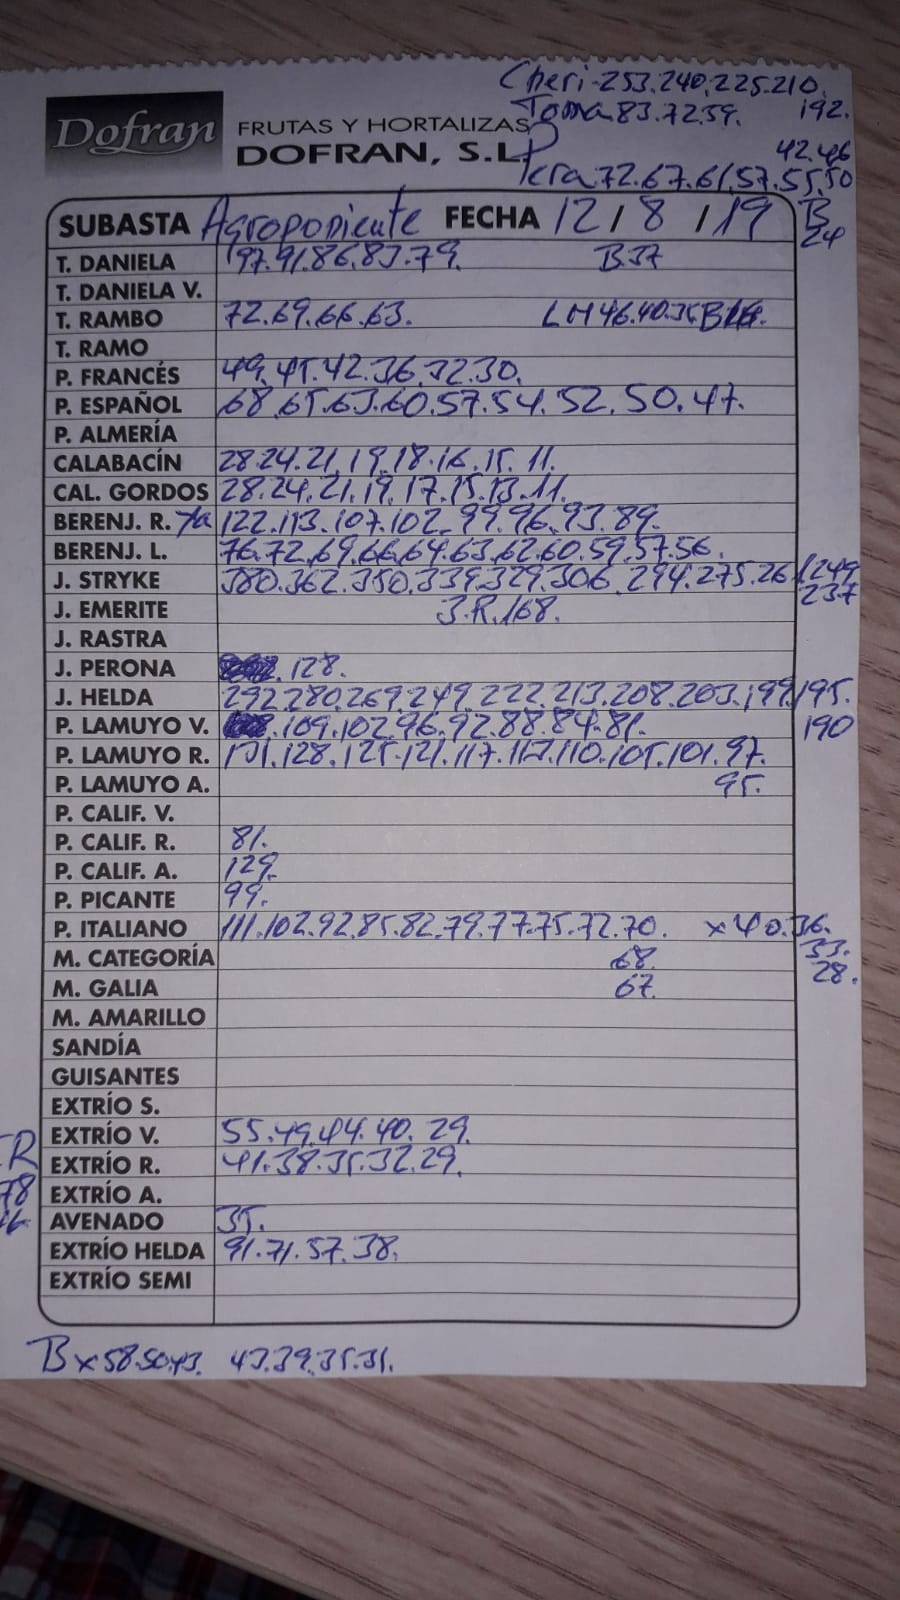 Cheri-253.240.225.210.
Toma.83.72.59. 192.
Dofran FRUTAS Y HORTALIZAS
DOFRAN, S.L.
42.46
Pera.72.67.61.57.55.50
SUBASTA Agroponiente FECHA 12/8/19 B
24
T. DANIELA 97.91.86.83.79. B.37
T. DANIELA V.
T. RAMBO 72.69.66.63. LH46.40.35.
T. RAMO
P. FRANCÉS 49.45.42.36.32.30.
P. ESPAÑOL 68.65.63.60.57.54.52.50.47.
P. ALMERÍA
CALABACÍN 28.24.21.19.18.16.15.11.
CAL. GORDOS 28.24.21.19.17.15.13.11.
BERENJ. R. 122.113.107.102.99.96.93.89.
BERENJ. L. 76.72.69.66.64.63.62.60.59.57.56.
J. STRYKE 380.362.350.339.329.306.294.275.261.249
237
J. EMERITE J.R.168.
J. RASTRA
J. PERONA .128.
J. HELDA 292.280.269.249.222.213.208.203.199.195.
190
P. LAMUYO V. .109.102.96.92.88.84.81.
P. LAMUYO R. 131.128.125.121.117.112.110.105.101.97.
P. LAMUYO A. 95.
P. CALIF. V.
P. CALIF. R. 81.
P. CALIF. A. 129.
P. PICANTE 99.
P. ITALIANO 111.102.92.85.82.79.77.75.72.70. x40.36.
33.
28.
M. CATEGORÍA 68.
M. GALIA 67.
M. AMARILLO
SANDÍA
GUISANTES
EXTRÍO S.
EXTRÍO V. 55.49.44.40.29.
EXTRÍO R. 41.38.35.32.29.
EXTRÍO A.
AVENADO 35.
EXTRÍO HELDA 91.71.57.38.
EXTRÍO SEMI
Bx58.50.43. 43.39.35.31.